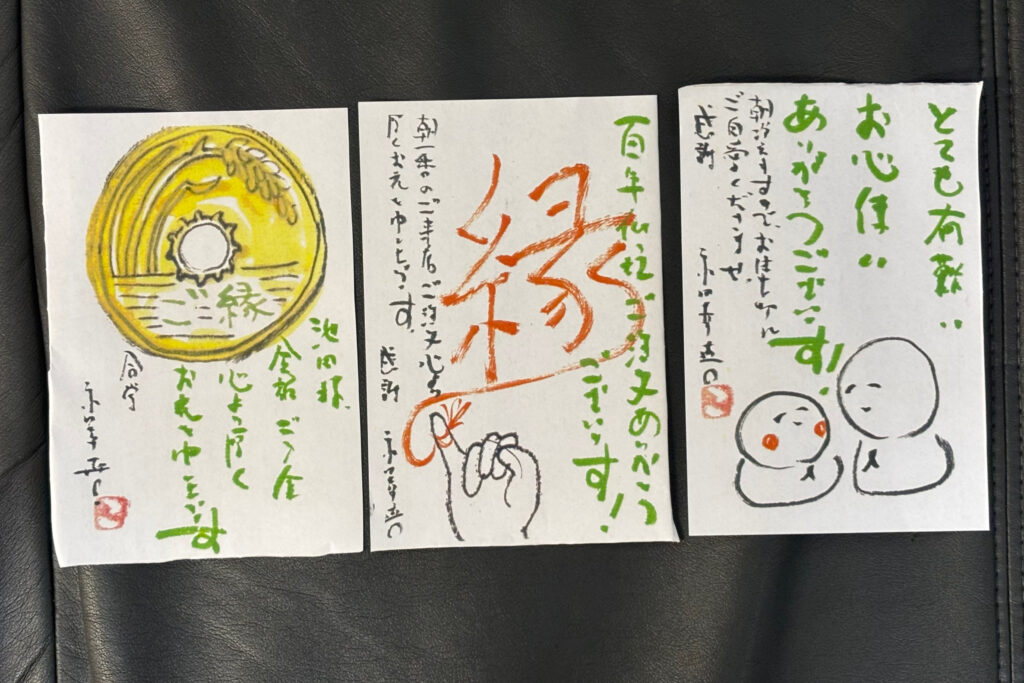 ご縁
池田様
ご入金
心より厚く
お礼を申し上げます
合掌
ご注文ありがとう
ございます!
縁
朝一番のご来店、ご注文心より
厚くお礼を申し上げます。
感謝
とても有難い
お心使い
ありがとうございます!
朝冷えますので、お体大切に
ご自愛くださいませ
感謝